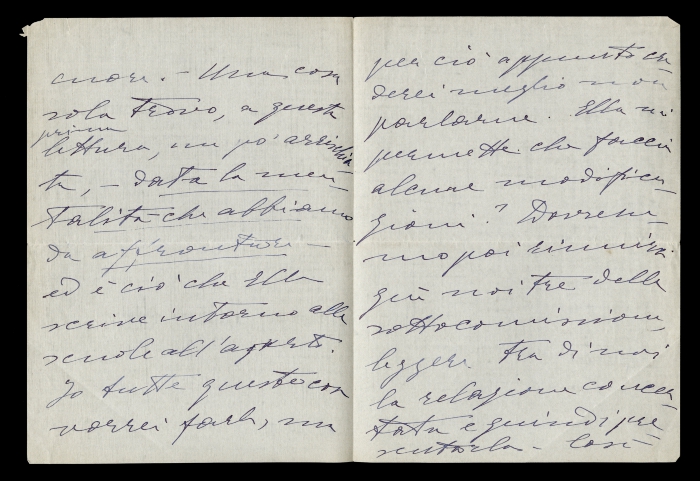 cuore. - Una cosa
sola trovo, a questa
prima
lettura, un po' arrischia-
ta, - data la men-
talità che abbiamo
da affrontare -
ed è ciò che Ella
scrive intorno alle
scuole all'aperto.
Io tutte queste cose
vorrei farle, ma
per ciò appunto cre
derei meglio non
parlarne. Ella mi
permette che faccia
alcune modifica-
zioni? Dovrem-
mo poi riunirci
noi tre della
sottocomissione,
leggere tra di noi
la relazione concer
tata e quindi pre
sentarla - Così